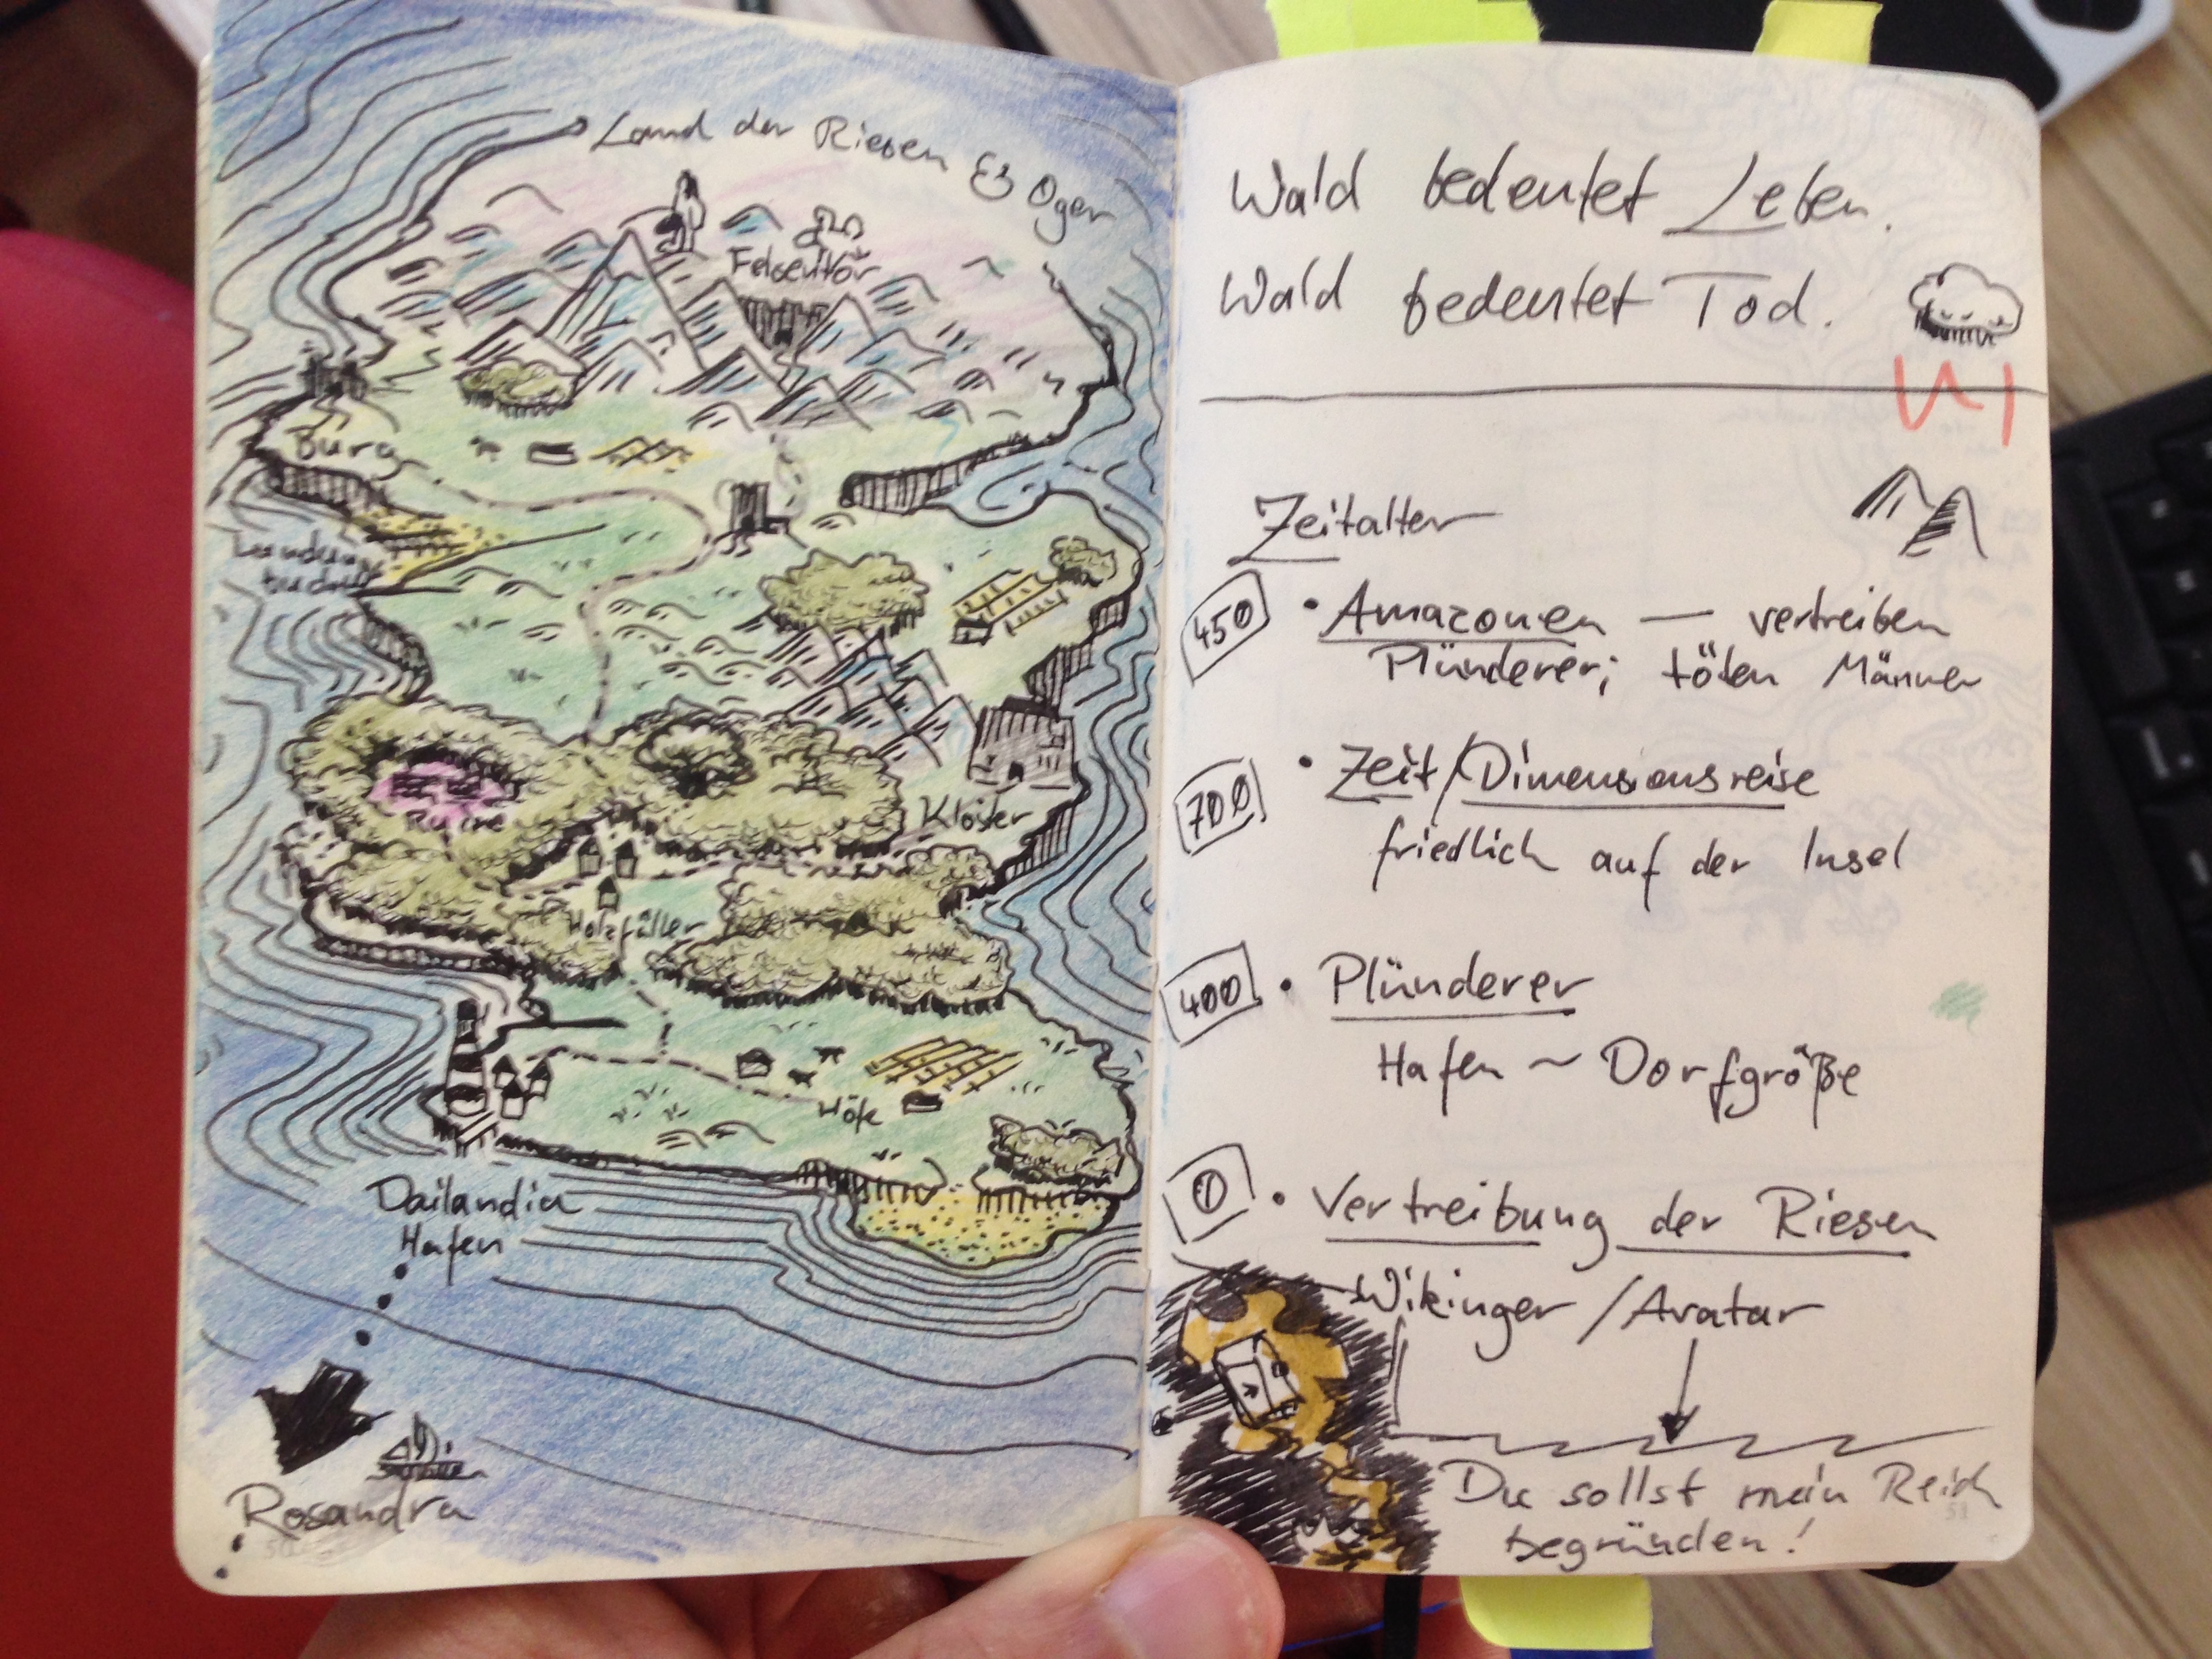 Land der Riesen & Oger
Felsentor
Burg
Ruine
Kloster
Holzfäller
Höfe
Dailandia
Hafen
Rosandra
50
Wald bedeutet Leben.
Wald bedeutet Tod.
Zeitalter
450 • Amazonen — vertreiben
Plünderer; töten Männer
700 • Zeit/Dimensionsreise
friedlich auf der Insel
400 • Plünderer
Hafen ~ Dorfgröße
0 • Vertreibung der Riesen
Wikinger / Avatar
Du sollst mein Reich
begründen!
51